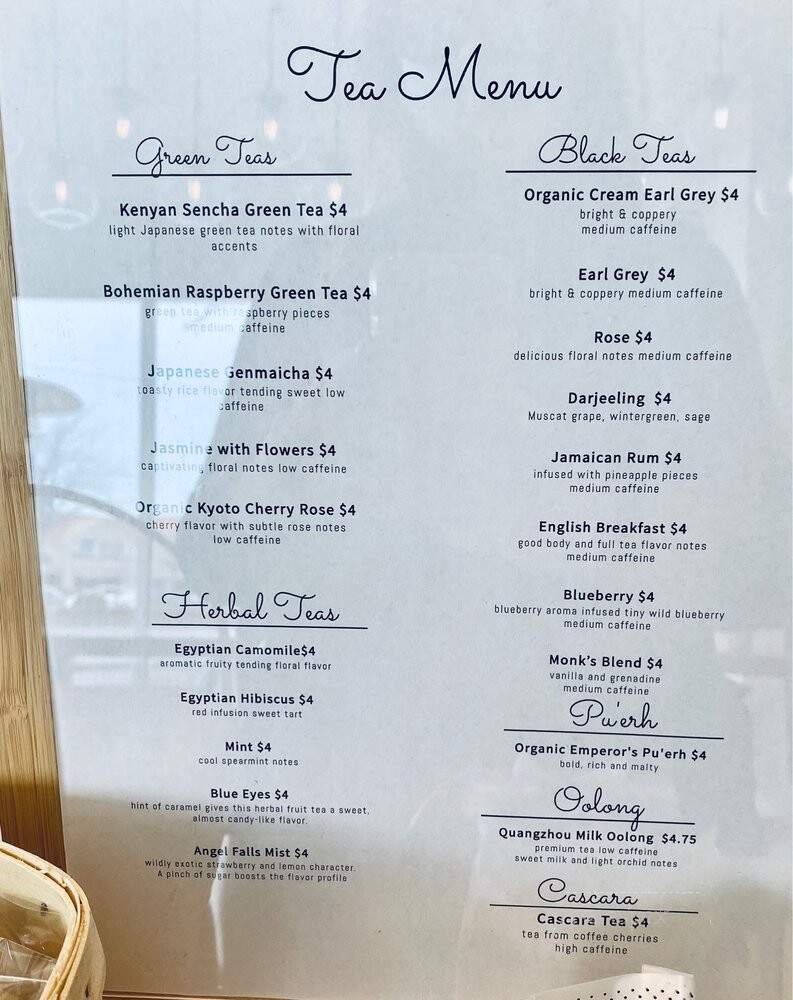 Tea Menu
Green Teas
Kenyan Sencha Green Tea $4
light Japanese green tea notes with floral
accents
Bohemian Raspberry Green Tea $4
green tea with raspberry pieces
medium caffeine
Japanese Genmaicha $4
toasty rice flavor tending sweet low
caffeine
Jasmine with Flowers $4
captivating floral notes low caffeine
Organic Kyoto Cherry Rose $4
cherry flavor with subtle rose notes
low caffeine
Herbal Teas
Egyptian Camomile$4
aromatic fruity tending floral flavor
Egyptian Hibiscus $4
red infusion sweet tart
Mint $4
cool spearmint notes
Blue Eyes $4
hint of caramel gives this herbal fruit tea a sweet,
almost candy-like flavor.
Angel Falls Mist $4
wildly exotic strawberry and lemon character.
A pinch of sugar boosts the flavor profile
Black Teas
Organic Cream Earl Grey $4
bright & coppery
medium caffeine
Earl Grey $4
bright & coppery medium caffeine
Rose $4
delicious floral notes medium caffeine
Darjeeling $4
Muscat grape, wintergreen, sage
Jamaican Rum $4
infused with pineapple pieces
medium caffeine
English Breakfast $4
good body and full tea flavor notes
medium caffeine
Blueberry $4
blueberry aroma infused tiny wild blueberry
medium caffeine
Monk's Blend $4
vanilla and grenadine
medium caffeine
Pu'erh
Organic Emperor's Pu'erh $4
bold, rich and malty
Oolong
Quangzhou Milk Oolong $4.75
premium tea low caffeine
sweet milk and light orchid notes
Cascara
Cascara Tea $4
tea from coffee cherries
high caffeine